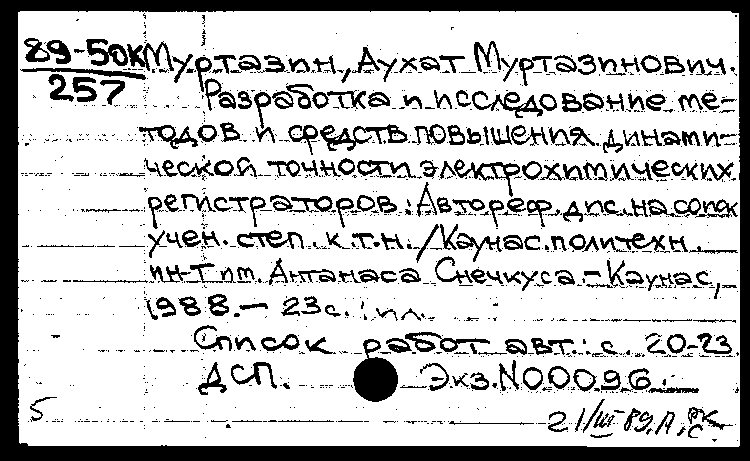 89-50к Муртазин, Аухат Муртазинович.
257
Разработка и исследование ме-
тодов и средств повышения динами-
ческой точности электрохимических
регистраторов: Автореф. дис. на соиск
учен. степ. к.т.н. /Каунас. политехн.
ин-т им. Антанаса Снечкуса.-Каунас,
1988.- 23с.: ил.
Список работ авт.: с. 20-23
ДСП. Экз.N00096.
5
21/III 89.